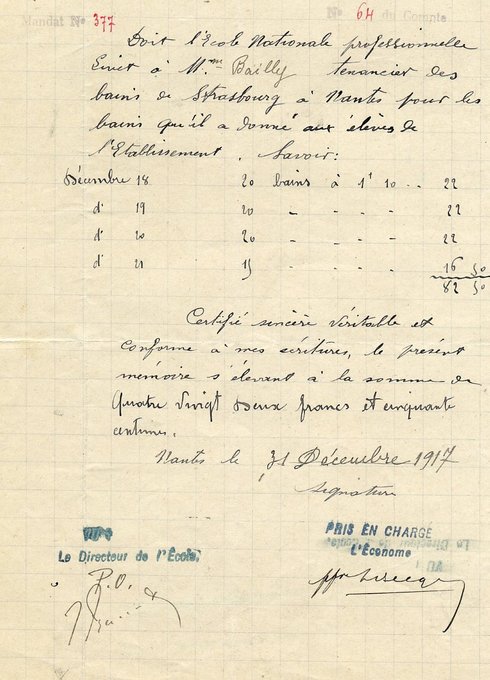 Mandat N° 377
N° 64 du Compte
Doit l'Ecole Nationale professionnelle
Livet à Mm Bailly tenancier des
bains de Strasbourg à Nantes pour les
bains qu'il a donné aux élèves de
l'Etablissement. Savoir:
Décembre 18 20 bains à 1f 10 .. 22
d° 19 20 - - - - 22
d° 20 20 - - - - 22
d° 21 15 - - - - 16 50
82 50
Certifié sincère véritable et
conforme à mes écritures, le présent
mémoire s'élevant à la somme de
quatre vingt deux francs et cinquante
centimes.
Nantes le 31 Décembre 1917
signature
VU
Le Directeur de l'École,
P.O.
PRIS EN CHARGE
L'Économe